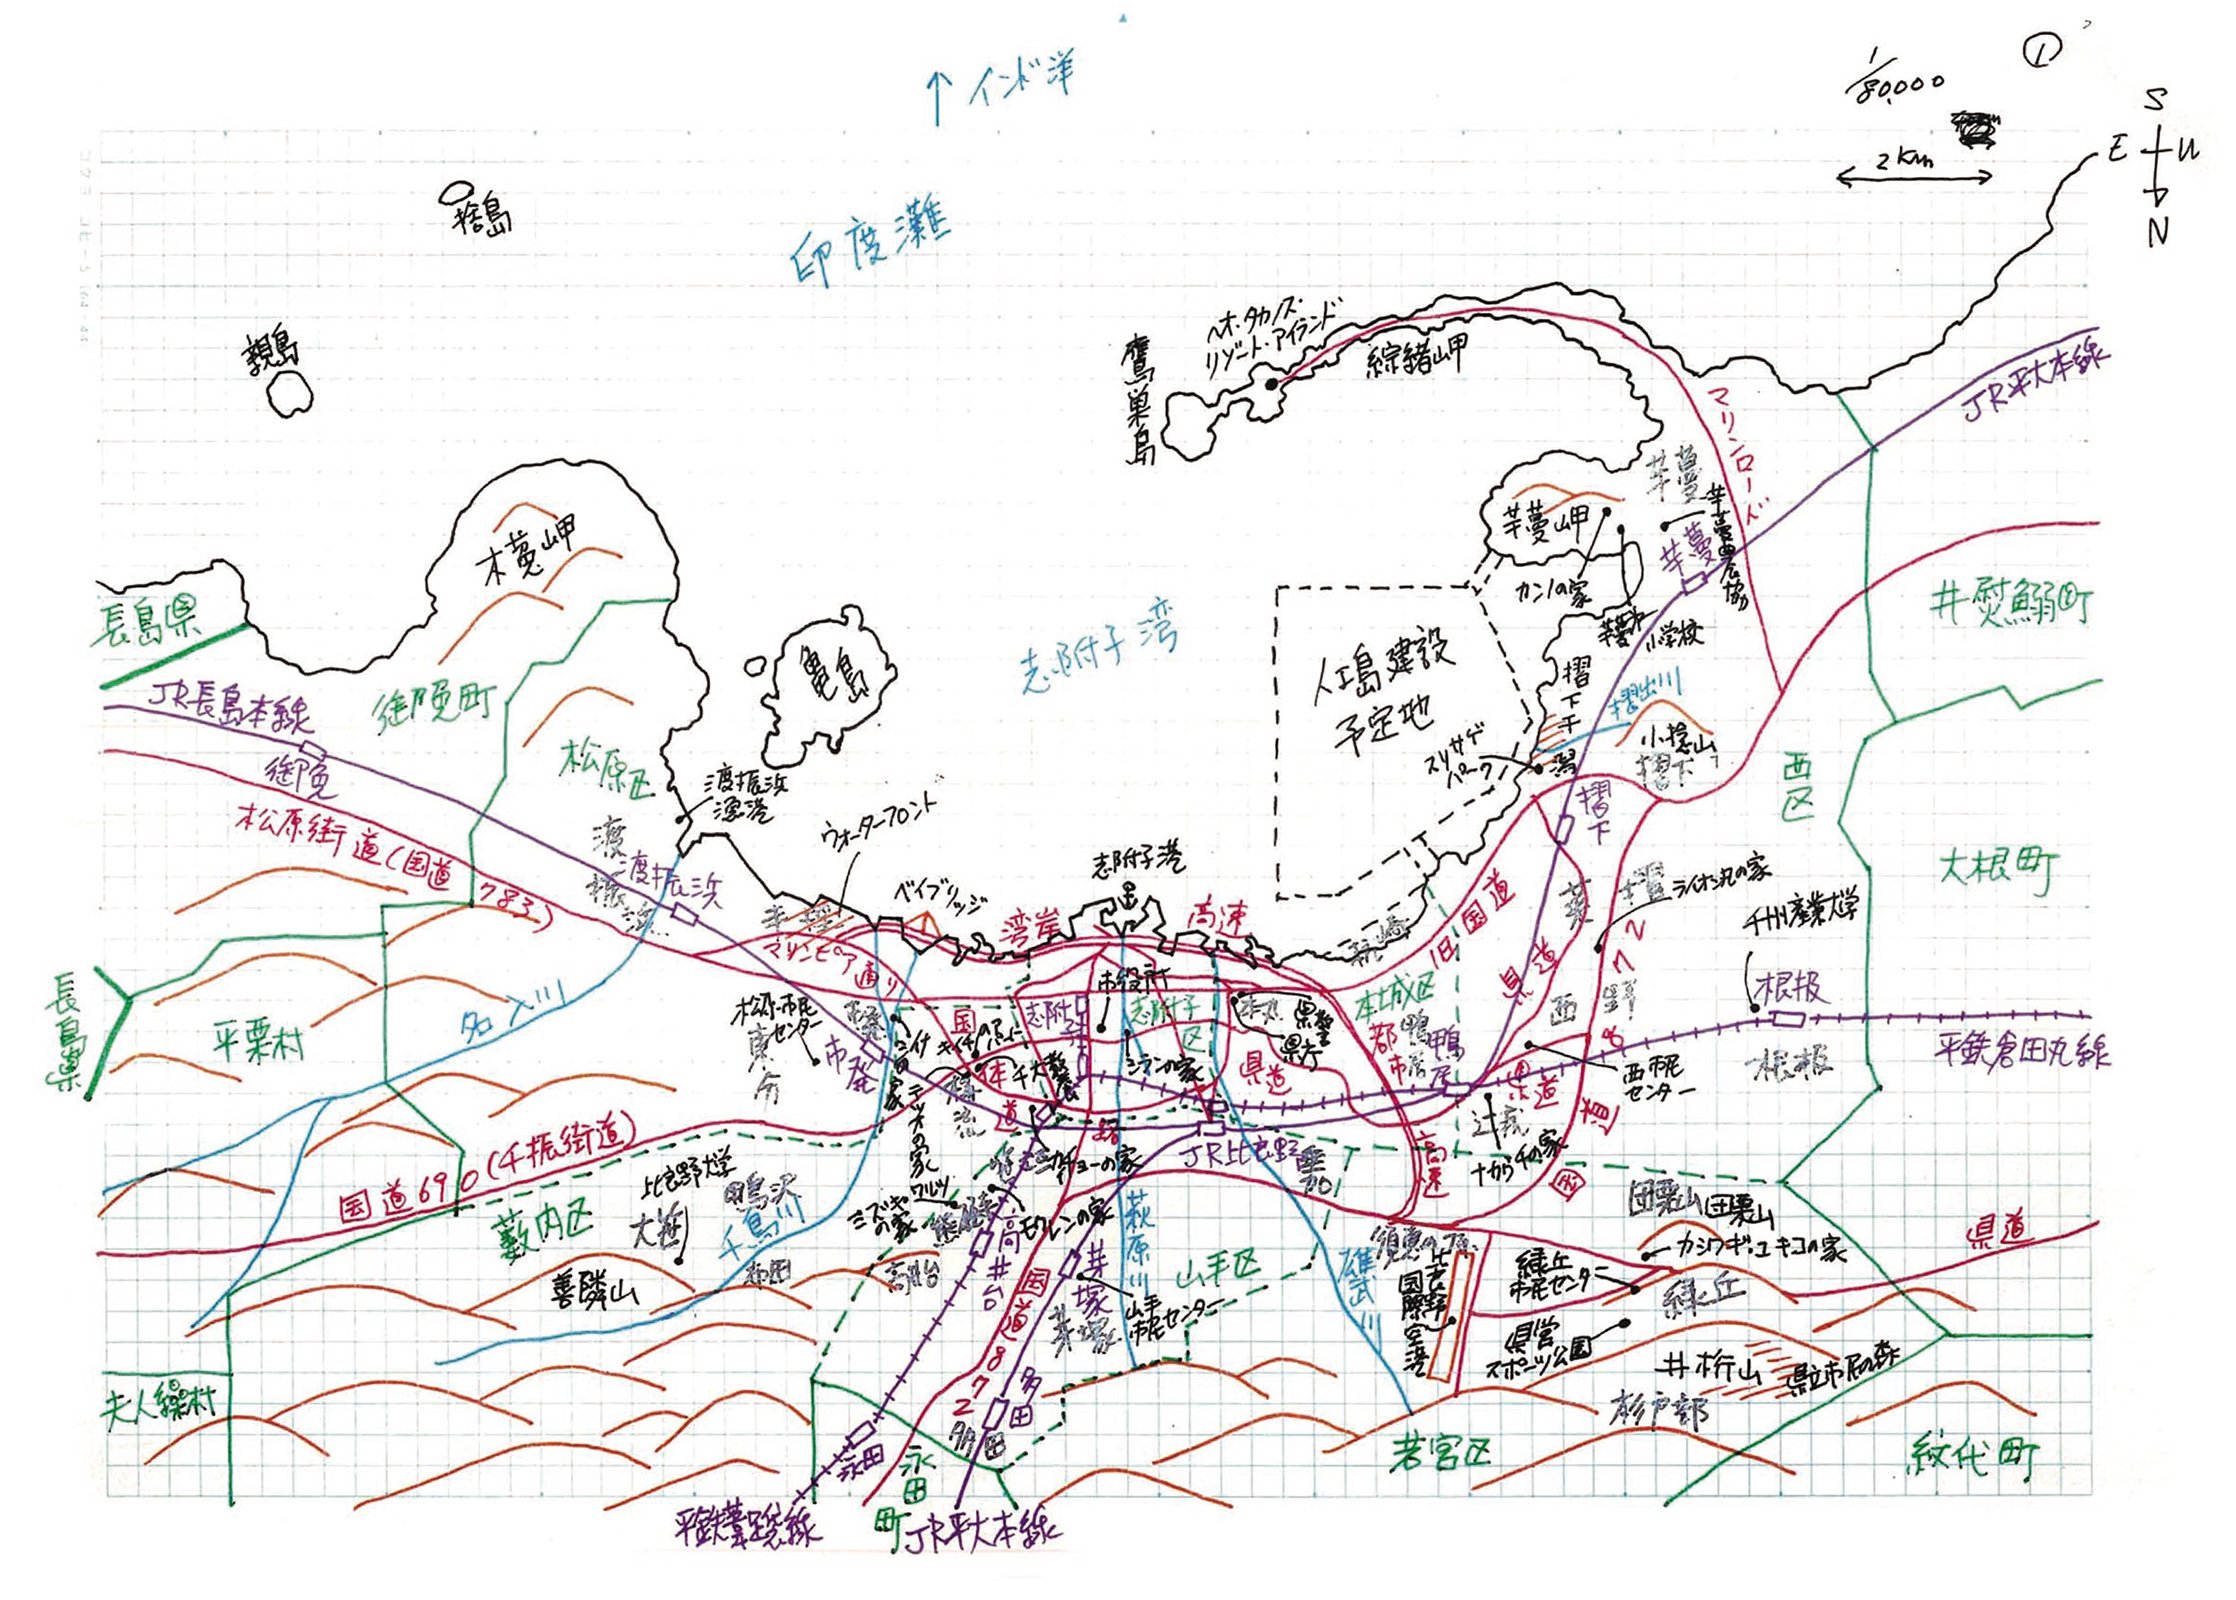 ①
1/80,000
2km
S
E
W
N
↑インド洋
印度灘
捨島
親島
鷹巣島
ヘオ・タカノス・
リゾート・アイランド
綜緒岬
マリンロード
JR平大本線
芋蔓
芋蔓岬
芋蔓
芋蔓農協
カンノの家
小学校
木菟岬
長島県
JR長島本線
御陵町
松原区
亀島
志附子湾
人工島建設
予定地
摺下干潟
摺出川
小捻山
摺下
スリサゲ
パーク
摺下
西区
大根町
松原街道(国道783)
渡振浜
漁港
渡振浜
渡振浜
ウォーターフロント
ベイブリッジ
志附子港
湾岸
高速
マリンピア通り
旧国道
ライオン丸の家
千州産業大学
根板
根板
平鉄倉田丸線
長島県
平栗村
名入川
松原市民
センター
市役所
志附子
志附子区
本丸
県警
県庁
本城区
都市
高速
鴨居
鴨居
県道
西野
西市民
センター
県道
シランの家
国体道路
国道690(千振街道)
比良野大学
大笹
鴨沢
千鳥川
柳田
薮内区
善隣山
テツオの家
ミズキ
の家
カチョーの家
モクレンの家
高井台
高井台
JR比良野
萩原川
山手区
雄武川
芽塚
芽塚
山手
市民センター
国道872
国道872
多田
多田
永田
永田町
平鉄華蹉線
JR平大本線
夫人繰村
比良野
国際空港
緑丘
市民センター
県営
スポーツ公園
団栗山
団栗山
カシワギ・ユキコの家
緑丘
井桁山
県立市民の森
杉戸部
若宮区
紋代町
県道
ナガラキの家